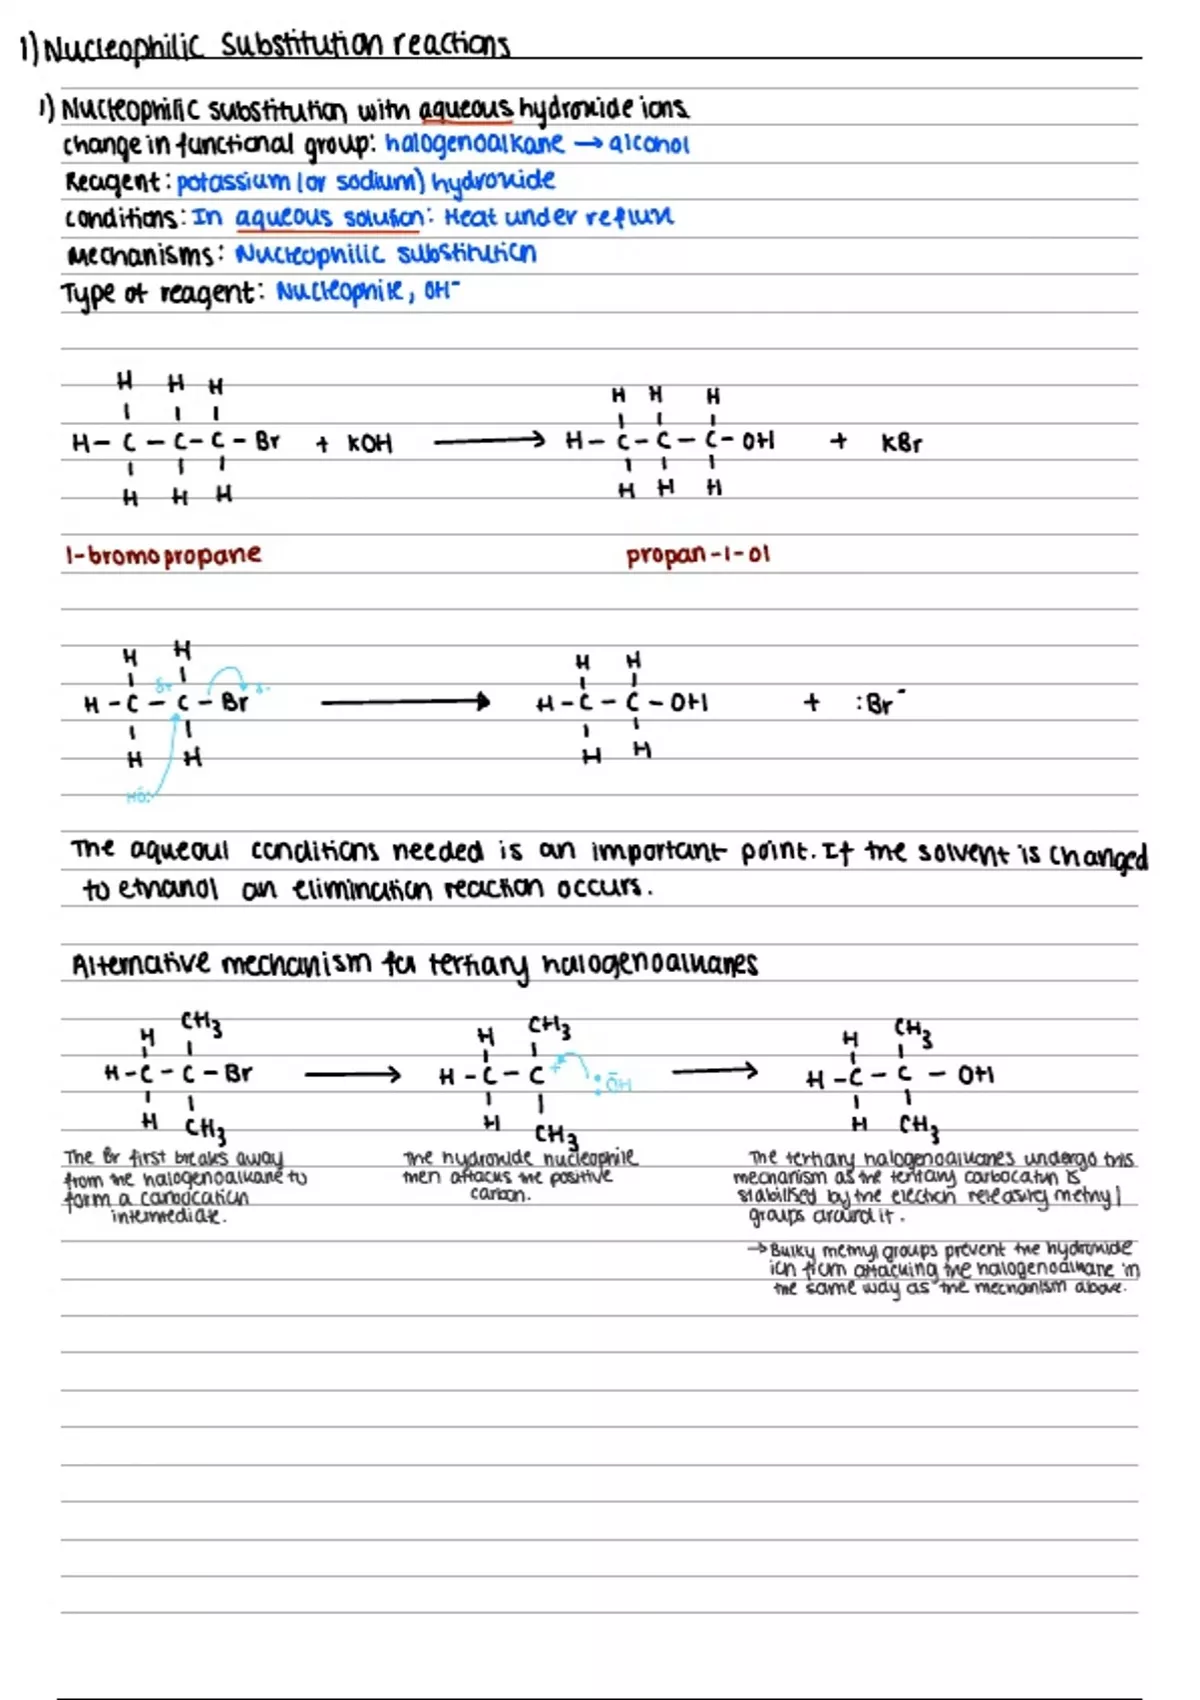 1) Nucleophilic substitution reactions
1) Nucleophilic substitution with aqueous hydroxide ions
change in functional group: halogenoalkane → alcohol
Reagent: potassium (or sodium) hydroxide
conditions: In aqueous solution: Heat under reflux
Mechanisms: Nucleophilic substitution
Type of reagent: Nucleophile, OH⁻
H H H
H – C – C – C – Br + KOH → H – C – C – C – OH + KBr
H H H
1-bromopropane propan-1-ol
H H
δ+ δ-
H – C – C – Br → H – C – C – OH + :Br⁻
H H
HO:⁻
The aqueous conditions needed is an important point. If the solvent is changed
to ethanol an elimination reaction occurs.
Alternative mechanism for tertiary halogenoalkanes
H CH₃ H CH₃ H CH₃
H – C – C – Br → H – C – C + :OH⁻ → H – C – C – OH
H CH₃ H CH₃ H CH₃
The Br first breaks away
from the halogenoalkane to
form a carbocation
intermediate.
The hydroxide nucleophile
then attacks the positive
carbon.
The tertiary halogenoalkanes undergo this
mechanism as the tertiary carbocation is
stabilised by the electron releasing methyl
groups around it.
→ Bulky methyl groups prevent the hydroxide
ion from attacking the halogenoalkane in
the same way as the mechanism above.